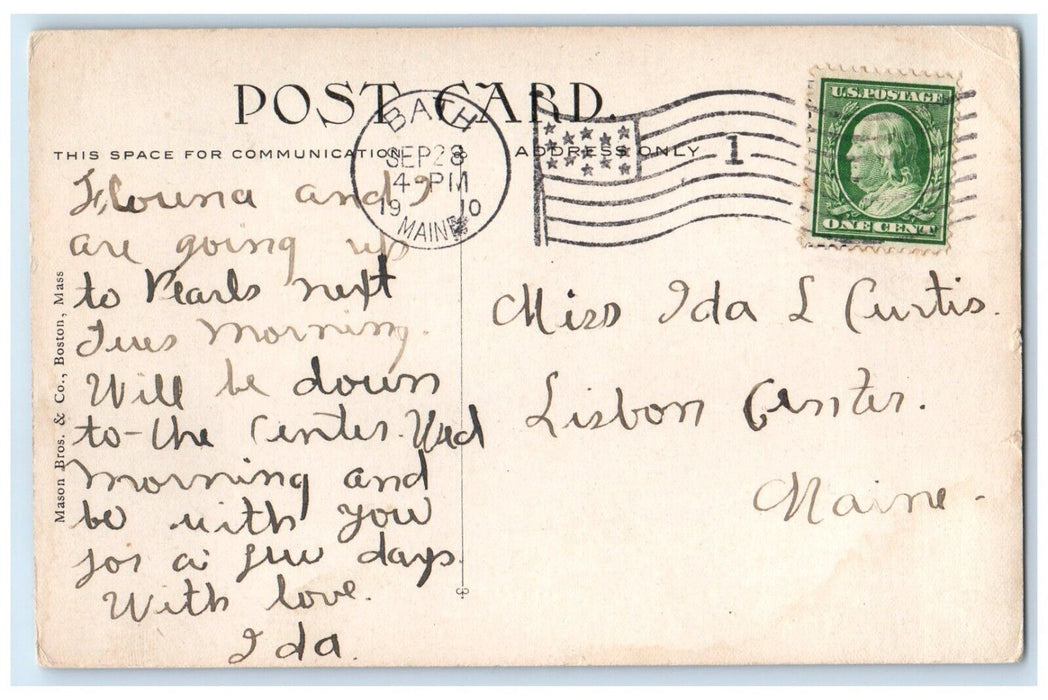 POST CARD.
THIS SPACE FOR COMMUNICATION
ADDRESS ONLY
BATH
SEP 28
4-PM
1910
MAINE
1
U.S. POSTAGE
ONE CENT
and I
are going up
to Pearls next
Tues Morning.
Will be down
to-the Center. Wed
morning and
be with you
for a few days.
With love.
Ida.
Miss Ida L Curtis.
Lisbon Center.
Maine-
Mason Bros. & Co., Boston, Mass